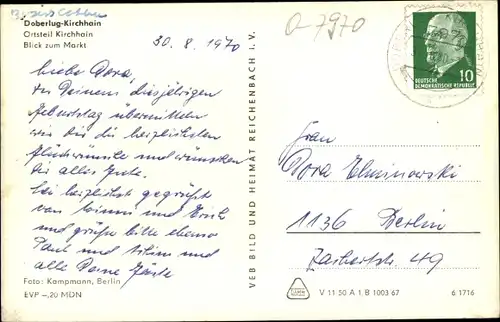 Doberlug-Kirchhain
Ortsteil Kirchhain
Blick zum Markt
30.8.1970
O-7970
Liebe Dora,
zu Deinem diesjährigen
Geburtstag übermitteln
wir Dir die herzlichsten
Glückwünsche und wünschen
Dir alles Gute.
Sei herzlichst gegrüßt
von und Erich
und grüße bitte ebenso
Paul und
alle Deine Gäste
Foto: Kampmann, Berlin
EVP –,20 MDN
VEB BILD UND HEIMAT REICHENBACH I. V.
DEUTSCHE
DEMOKRATISCHE REPUBLIK
10
Frau
Dora
1136 Berlin
Zachertstr. 49
V 11 50 A 1 B 1003 67
6 1716